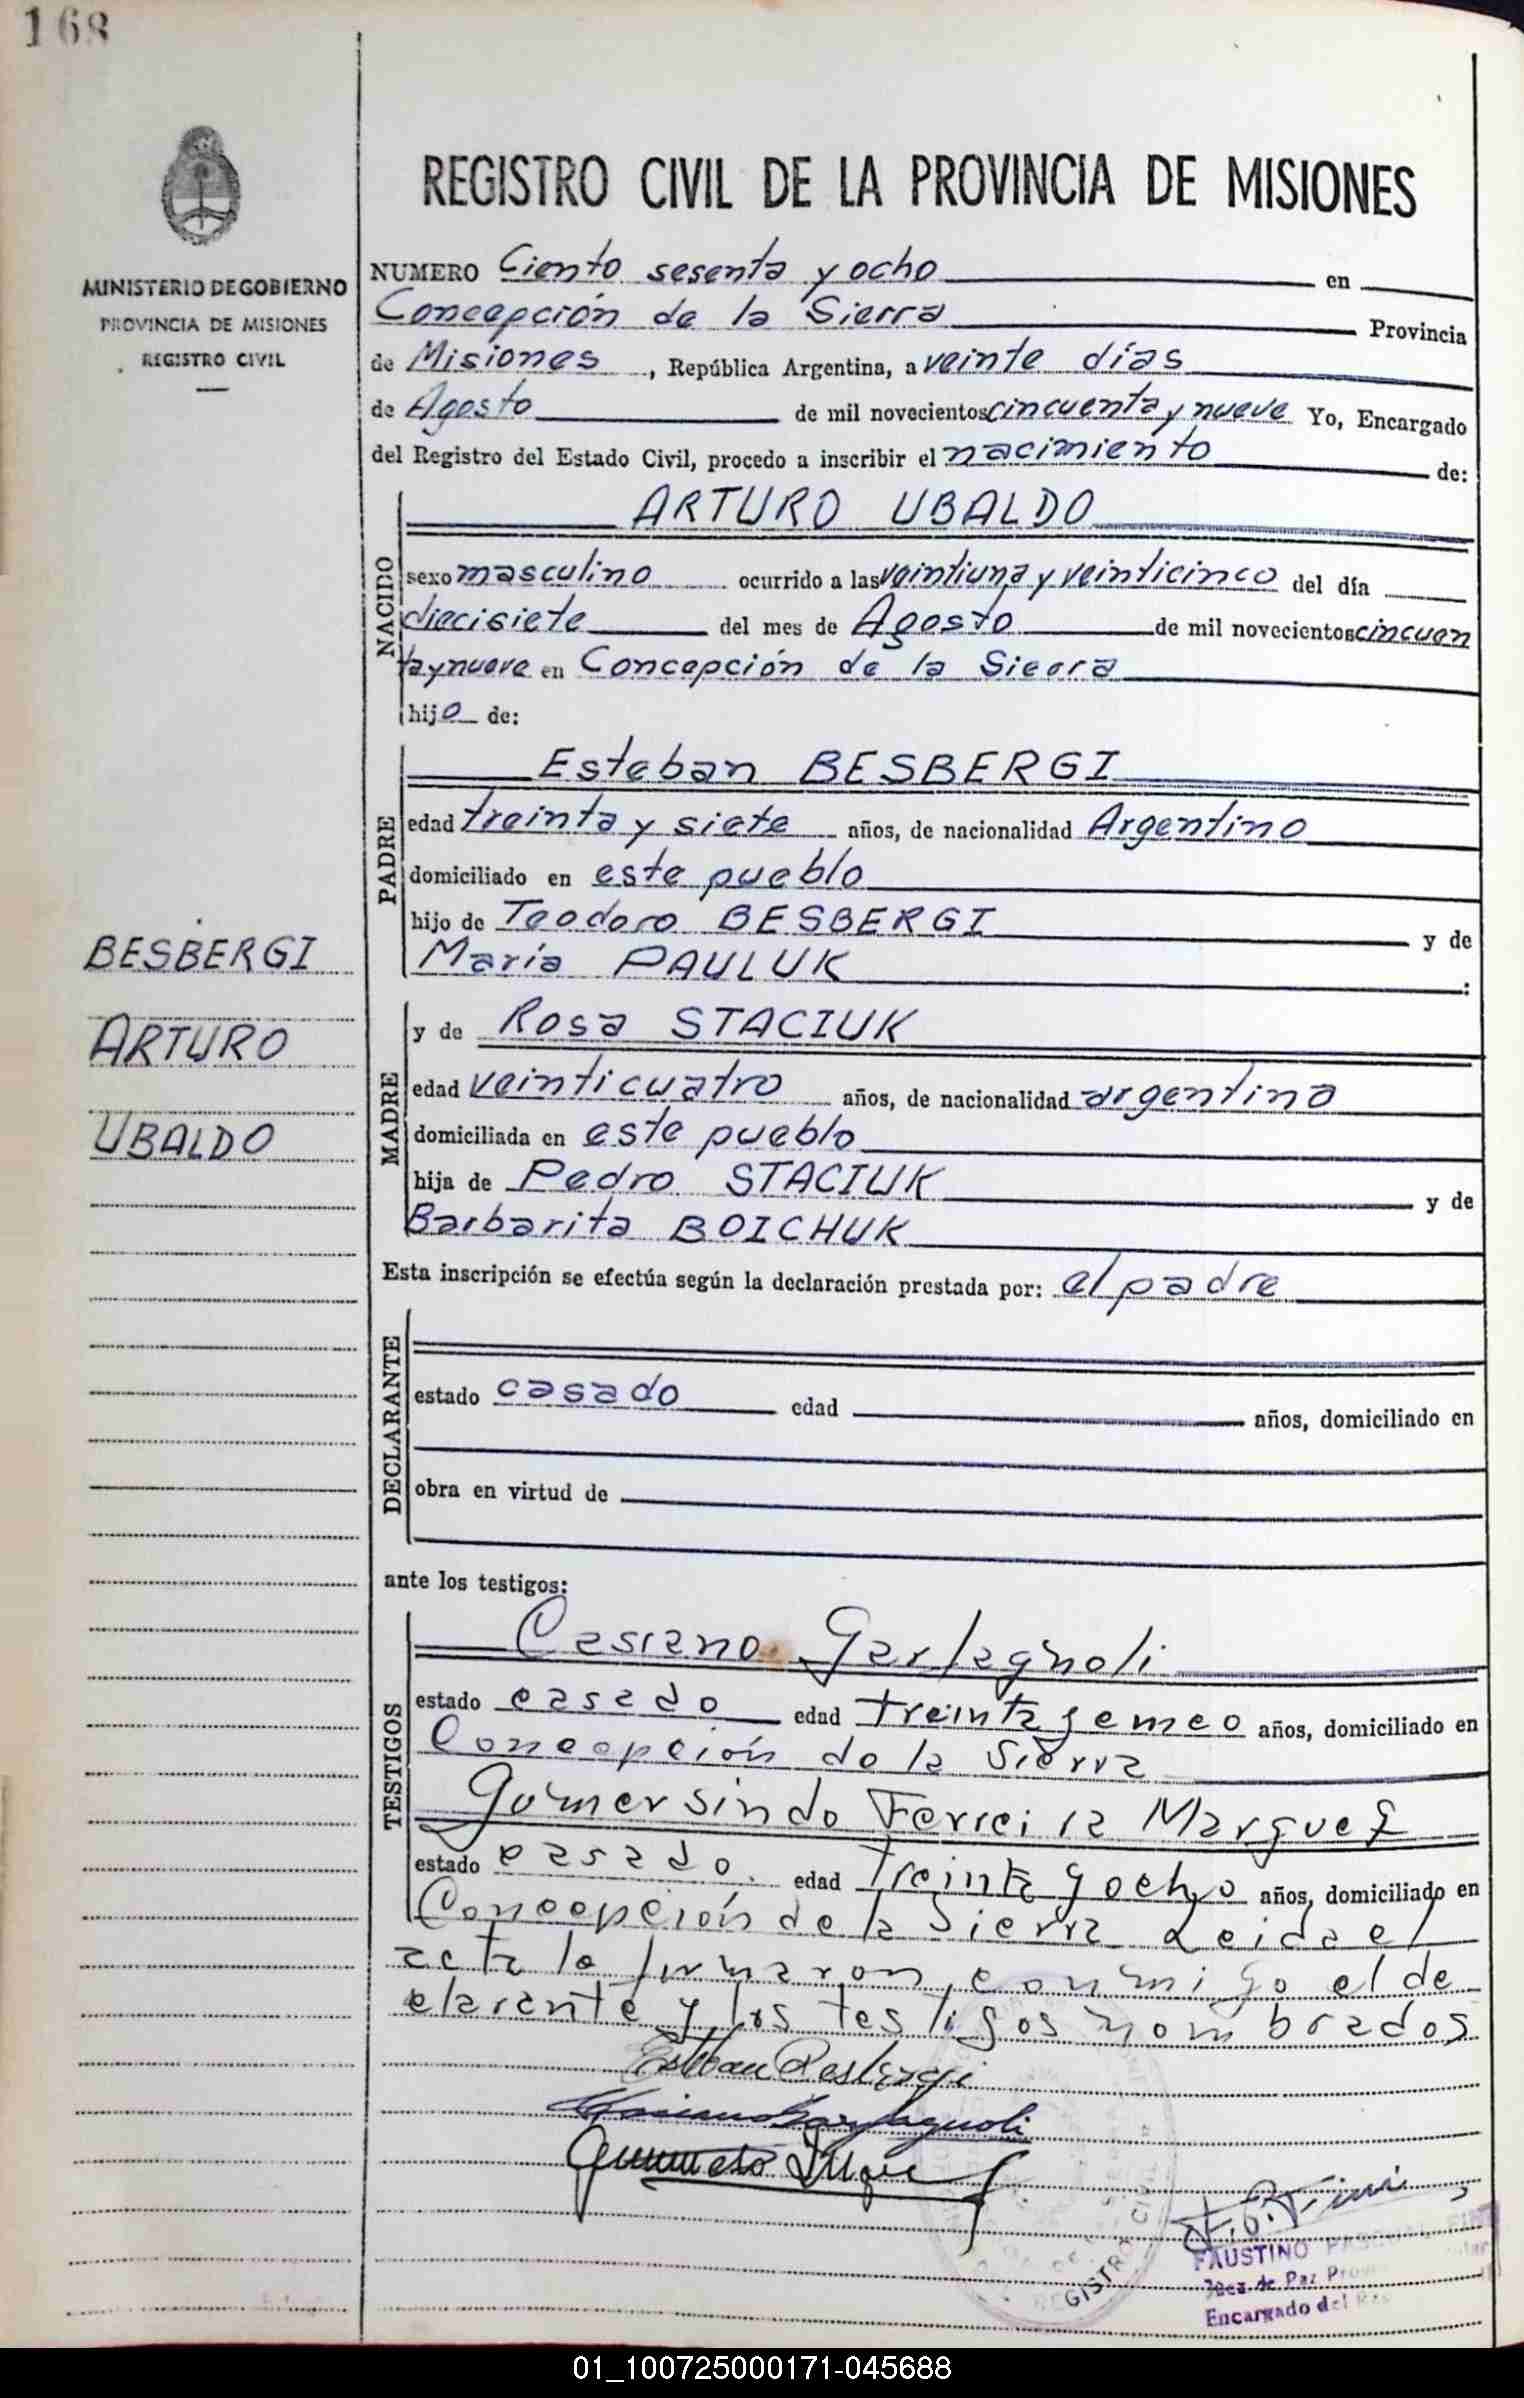 168
MINISTERIO DE GOBIERNO
PROVINCIA DE MISIONES
REGISTRO CIVIL
BESBERGI
ARTURO
UBALDO
REGISTRO CIVIL DE LA PROVINCIA DE MISIONES
NUMERO Ciento sesenta y ocho en
Concepción de la Sierra Provincia
de Misiones, República Argentina, a veinte días
de Agosto de mil novecientos cincuenta y nueve Yo, Encargado
del Registro del Estado Civil, procedo a inscribir el nacimiento de:
NACIDO
ARTURO UBALDO
sexo masculino ocurrido a las veintiuna y veinticinco del día
diecisiete del mes de Agosto de mil novecientos cincuen
ta y nueve en Concepción de la Sierra
hijo de:
PADRE
Esteban BESBERGI
edad treinta y siete años, de nacionalidad Argentino
domiciliado en este pueblo
hijo de Teodoro BESBERGI y de
María PAULUK :
MADRE
y de Rosa STACIUK
edad veinticuatro años, de nacionalidad argentina
domiciliada en este pueblo
hija de Pedro STACIUK y de
Barbarita BOICHUK
Esta inscripción se efectúa según la declaración prestada por: el padre
DECLARANTE
estado casado edad años, domiciliado en
obra en virtud de
ante los testigos:
TESTIGOS
Casiano Garlagnoli
estado casado edad treinta y cinco años, domiciliado en
Concepción de la Sierra
Gumersindo Ferreira Marquez
estado casado. edad treinta y ocho años, domiciliado en
Concepción de la Sierra Leida el
acta la firmaron, conmigo el de
clarante y los testigos nombrados
Esteban Besbergi
REGISTRO CIVIL
FAUSTINO PASCUAL
Juez de Paz
Encargado del
01_100725000171-045688